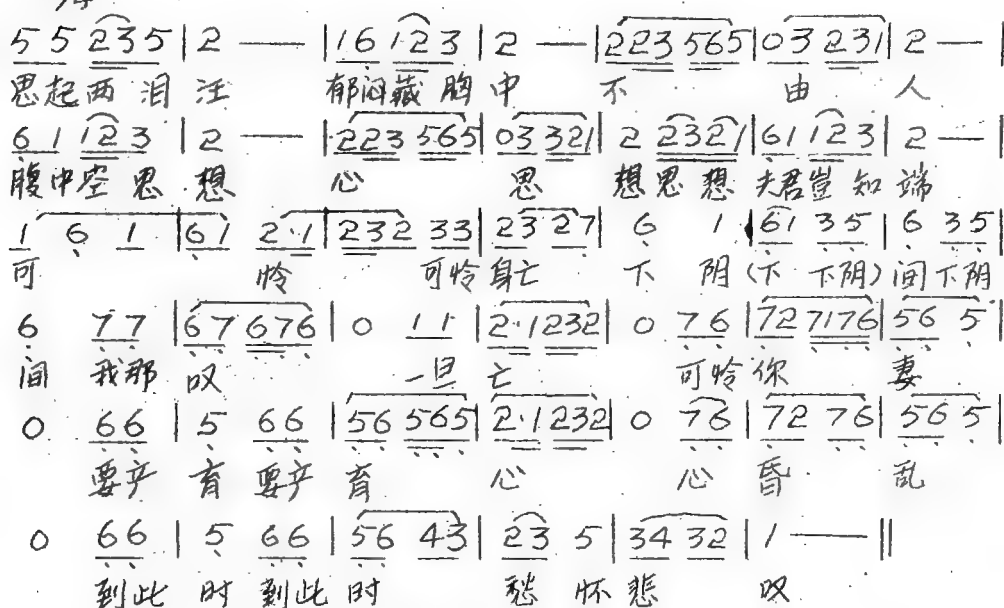 5 5 2 3 5 | 2 — | 1 6 1·2 3 | 2 — | 2 2 3 5 6 5 | 0 3 2 3 1 | 2 — |
思起两泪汪 郁闷藏胸中 不由人
6 1 1 2 3 | 2 — | 2 2 3 5 6 5 | 0 3 3 2 1 | 2 2 3 2 1 | 6 1 1 2 3 | 2 — |
腹中空思想 心思想思想夫君岂知端
1 6 1 | 6 1 2·1 | 2 3 2 3 3 | 2 3 2 7 | 6 1 | 6 1 3 5 | 6 3 5 |
可怜可怜身亡下阴(下下阴)间下阴
6 7 7 | 6 7 6 7 6 | 0 1 1 | 2·1 2 3 2 | 0 7 6 | 7 2 7 1 7 6 | 5 6 5 |
间我那叹一旦亡可怜你妻
0 6 6 | 5 6 6 | 5 6 5 6 5 | 2·1 2 3 2 | 0 7 6 | 7 2 7 6 | 5 6 5 |
要产育要产育心心昏乱
0 6 6 | 5 6 6 | 5 6 4 3 | 2 3 5 | 3 4 3 2 | 1 — ||
到此时到此时愁怀悲叹